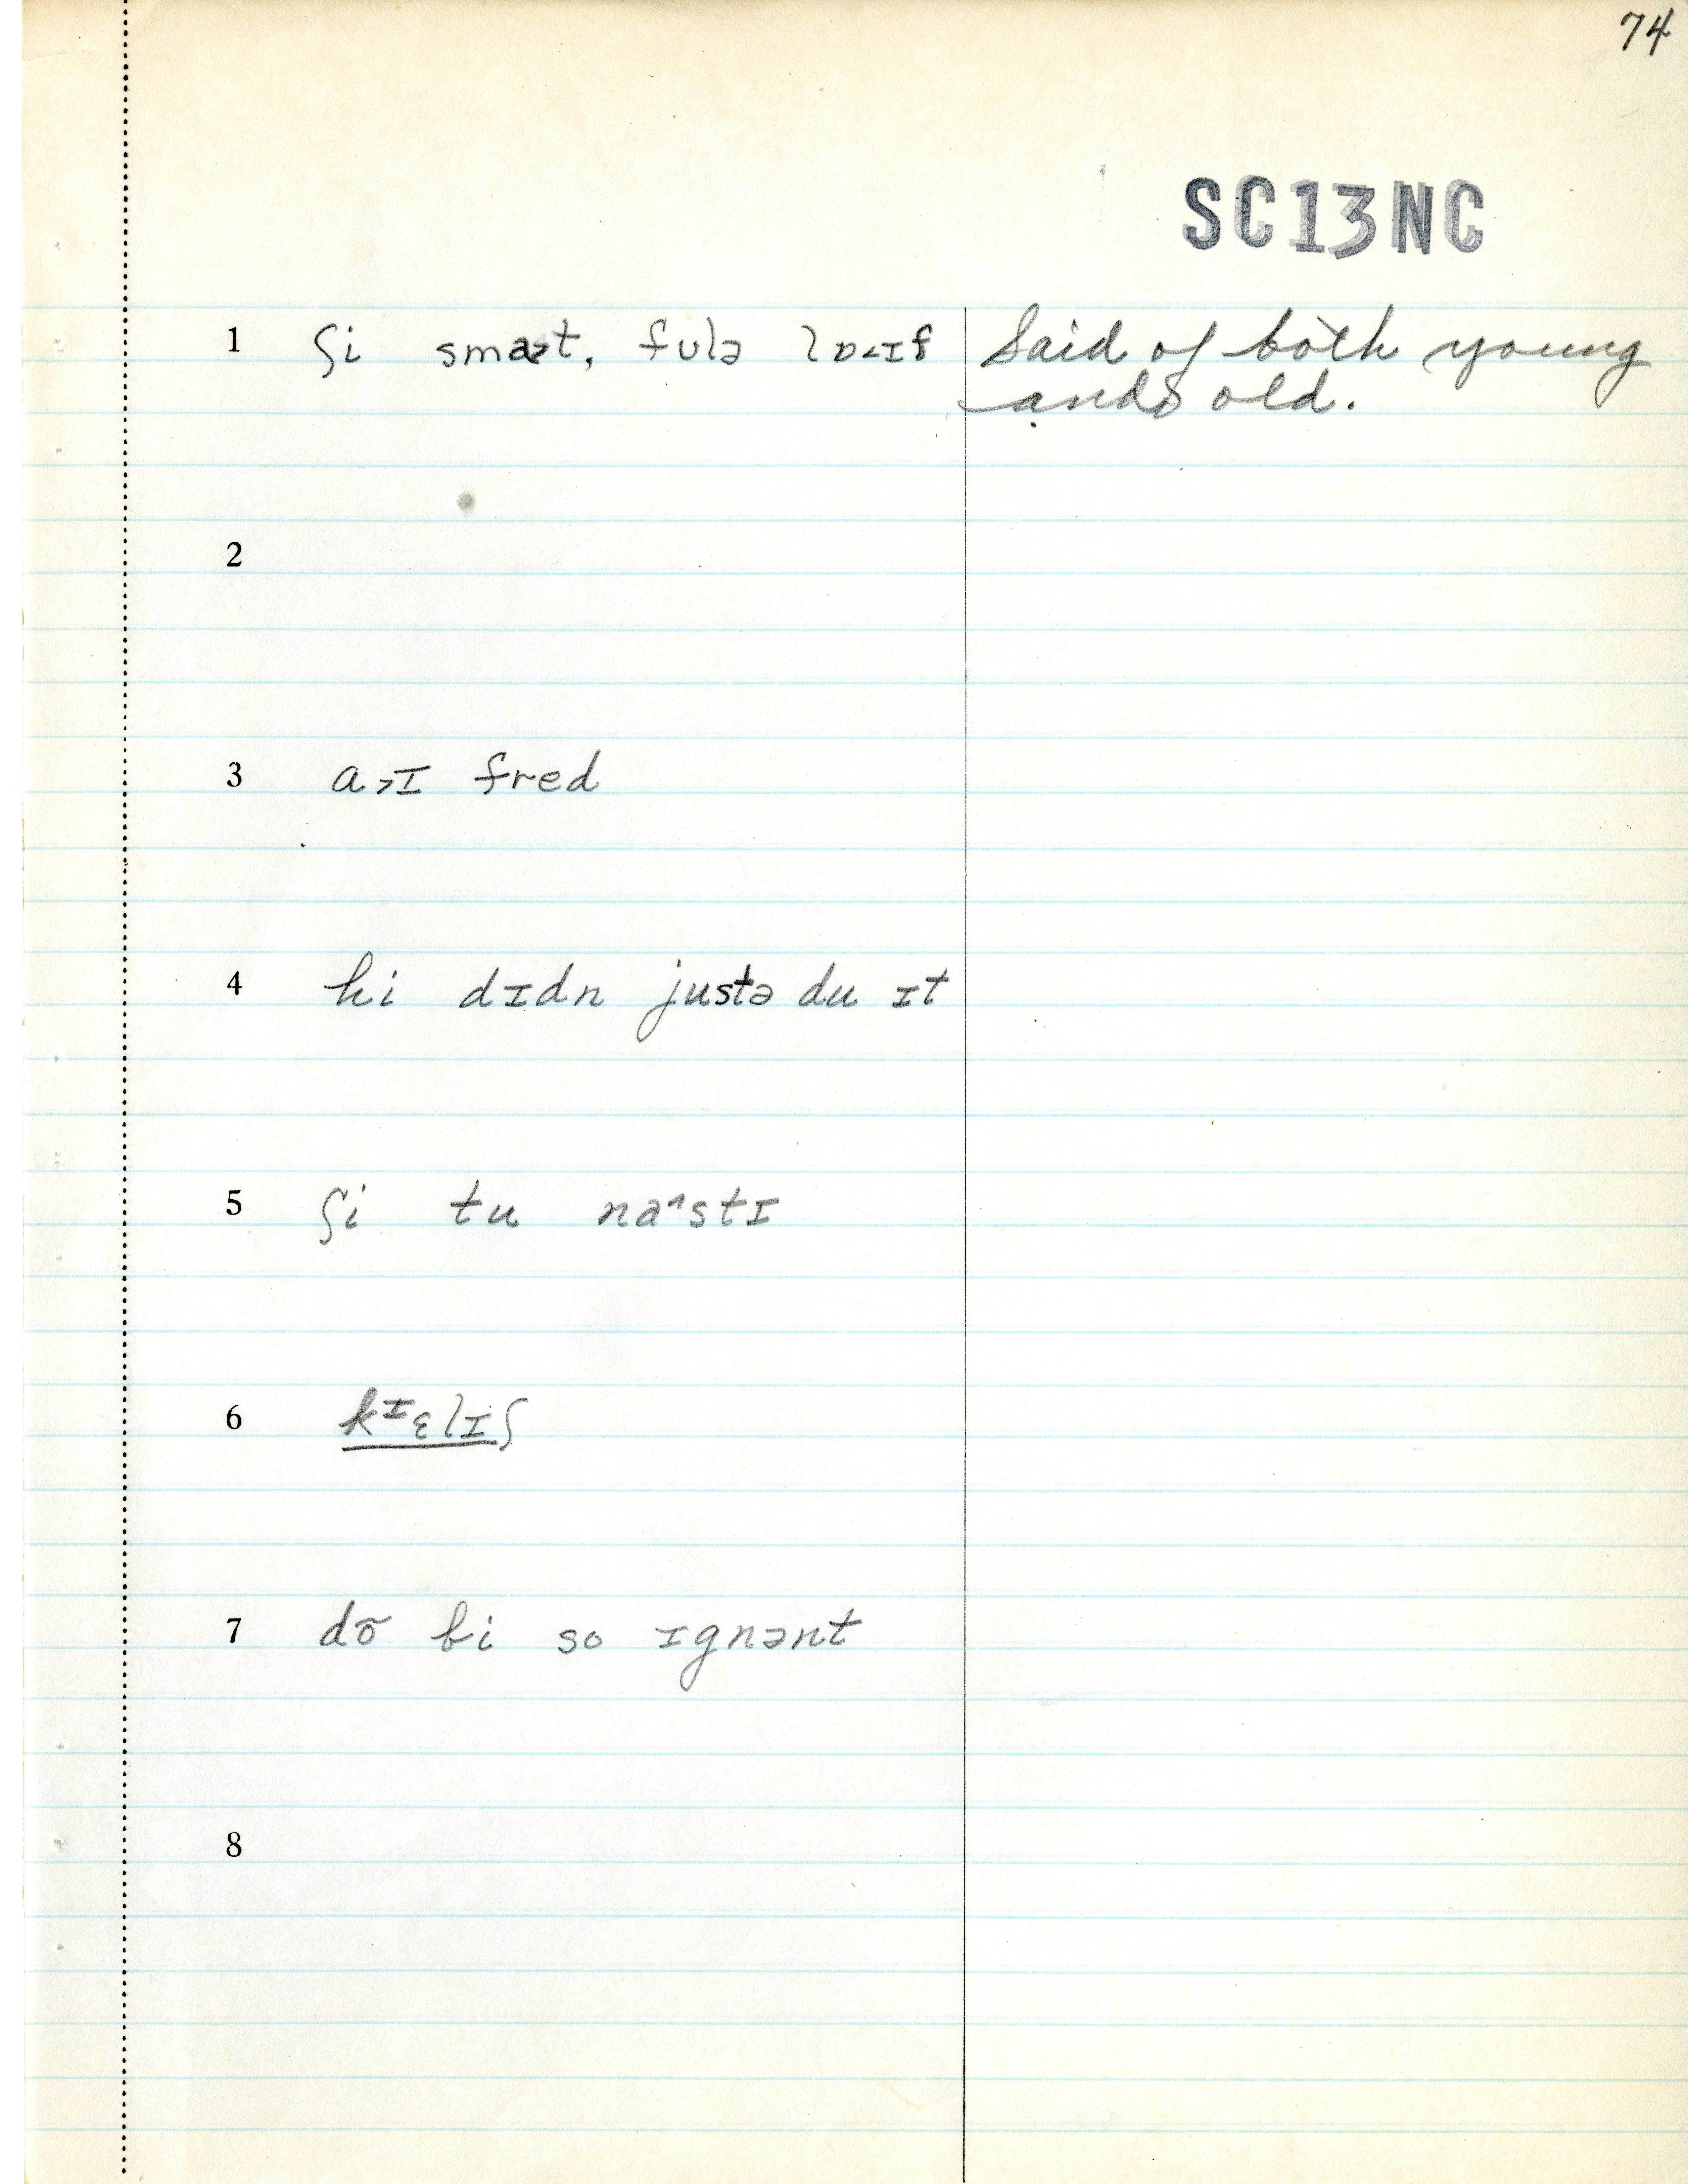 74
SC13NC
1 ʃi smaɚt, fulə lɒ˂ɪf Said of both young
and old.
2
3 a˃ɪ fred
4 hi dɪdn justə du ɪt
5 ʃi tu na^stɪ
6 kᶦɛlɪʃ
7 dõ bi so ɪgnənt
8